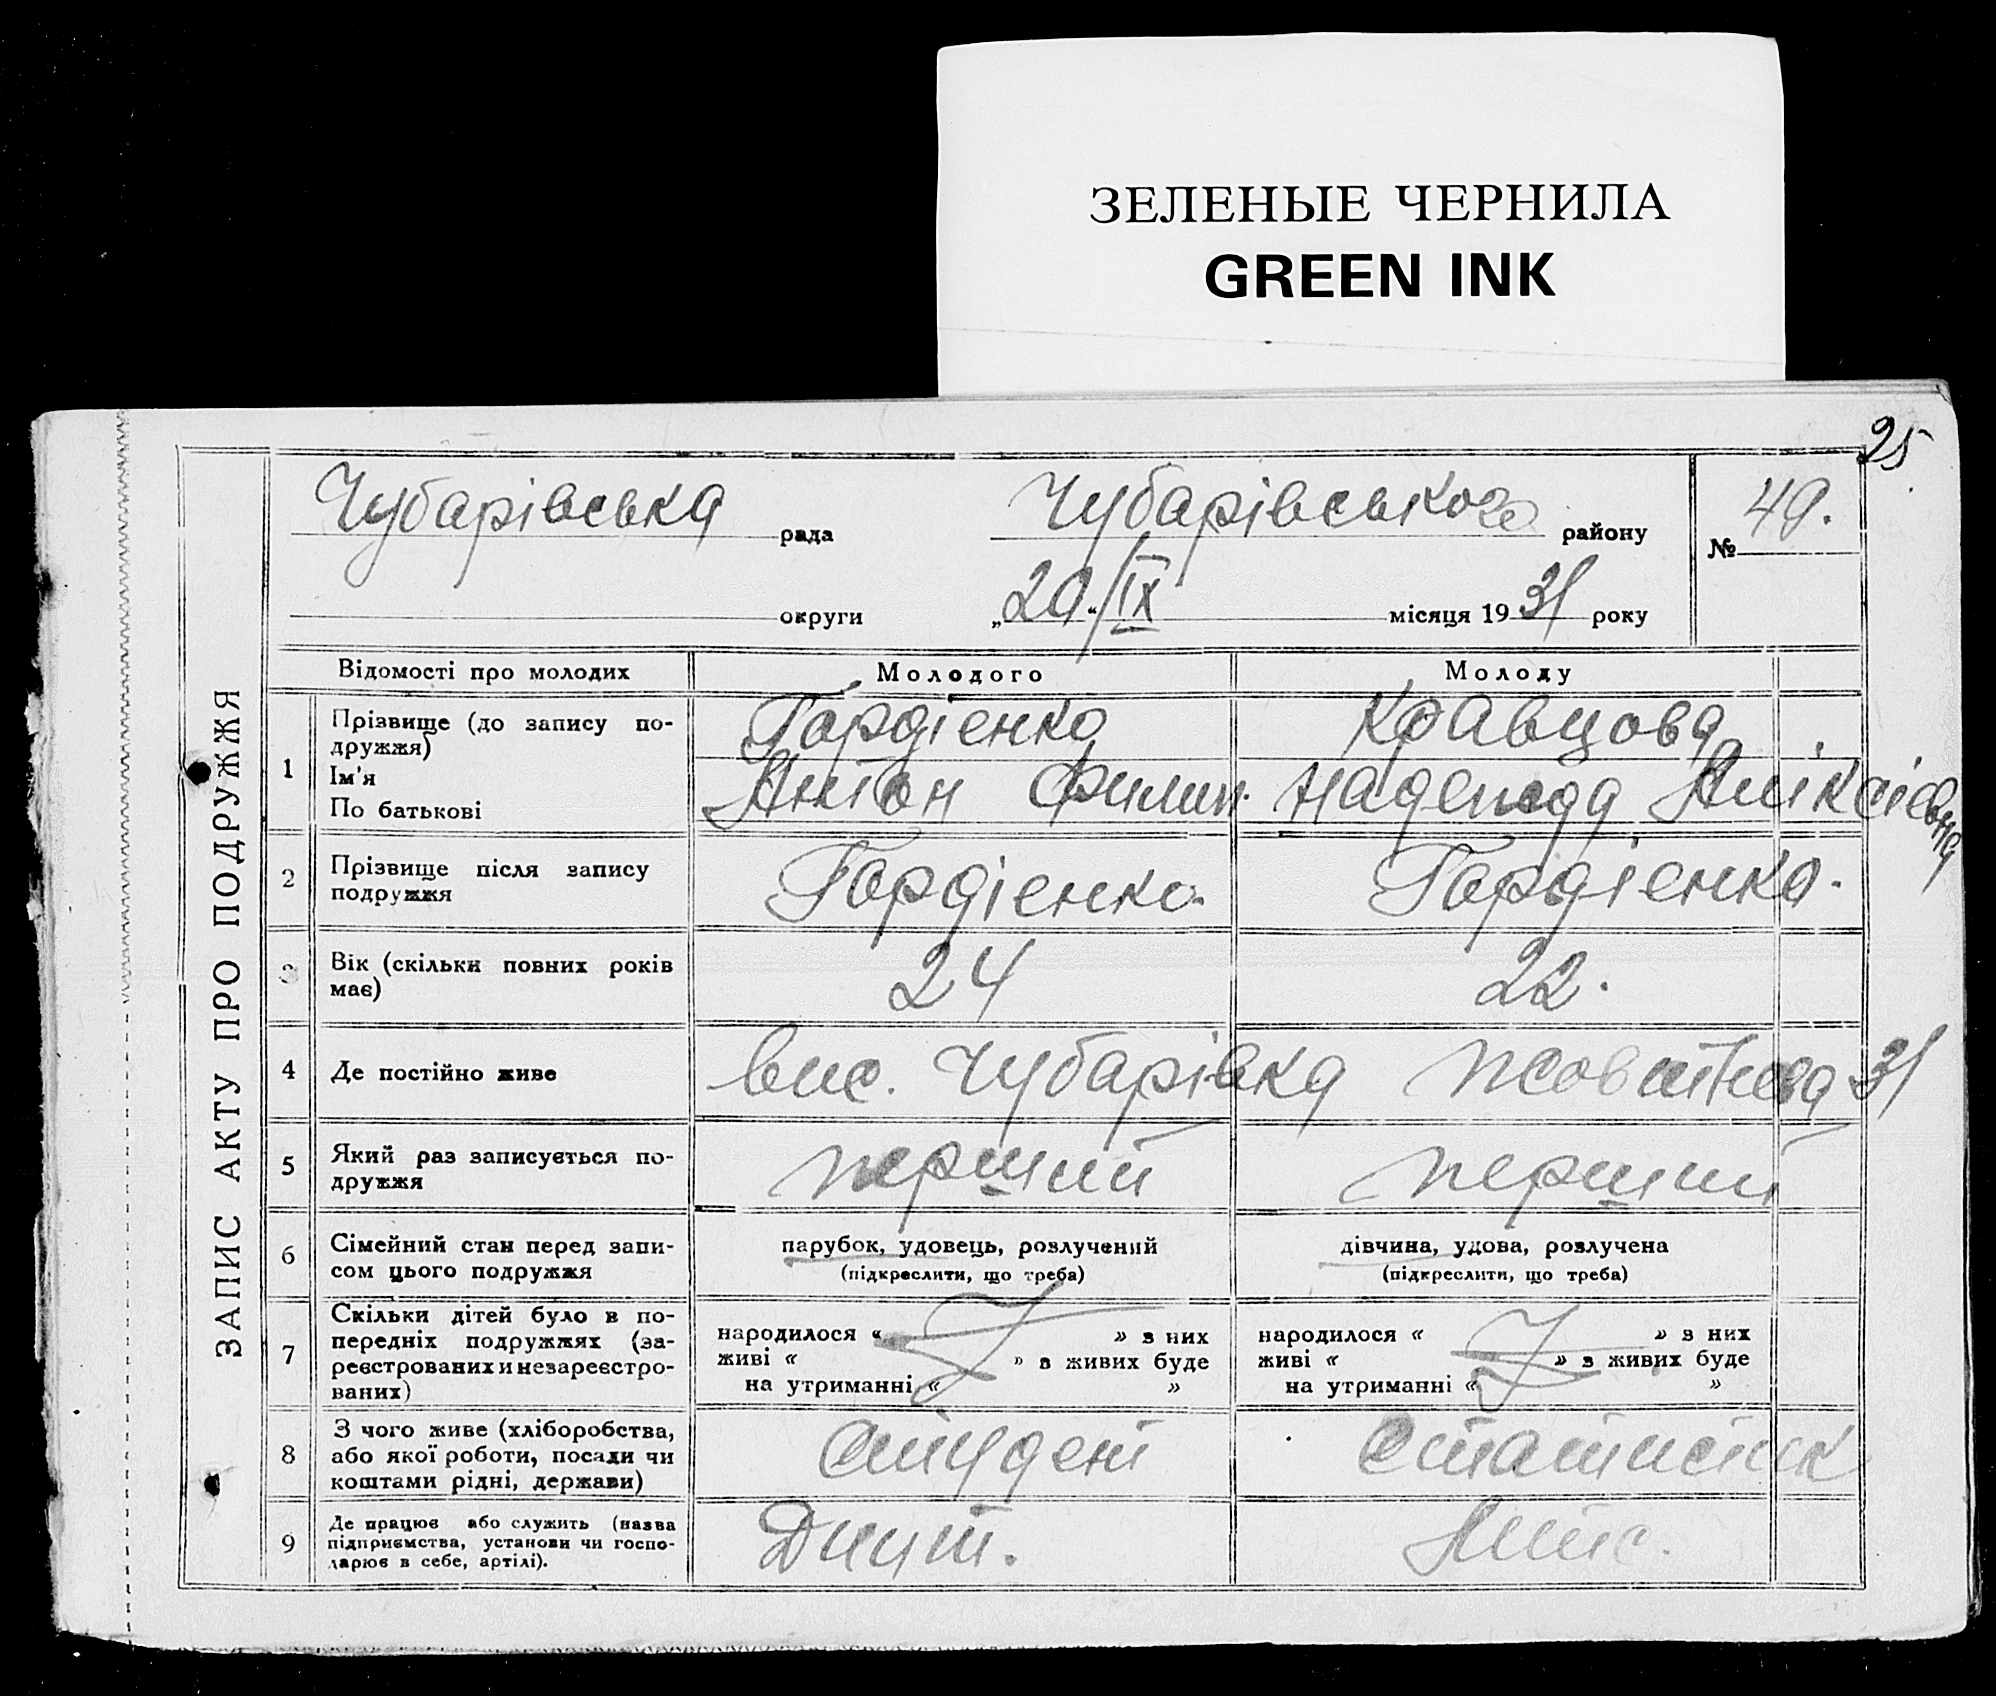 ЗЕЛЕНЫЕ ЧЕРНИЛА
GREEN INK
25
ЗАПИС АКТУ ПРО ПОДРУЖЖЯ
Чубарівська рада Чубарівського району № 49.
округи „20“/IX місяця 1931 року
Відомості про молодих Молодого Молоду
1 Прізвище (до запису по-
дружжя)
Гордієнко Кравцова
Ім'я
По батькові
Антон Филип. Надежда Аліксієвна
2 Прізвище після запису
подружжя
Гордієнко. Гордієнко.
3 Вік (скільки повних років
має)
24 22.
4 Де постійно живе вис. Чубарівка Жовтнева 31
5 Який раз записується по-
дружжя
перший перший
6 Сімейний стан перед запи-
сом цього подружжя
парубок, удовець, розлучений дівчина, удова, розлучена
(підкреслити, що треба) (підкреслити, що треба)
7 Скільки дітей було в по-
передніх подружжях (за-
реєстрованих и незареєстро-
ваних)
народилося « » з них народилося « » з них
живі « » з живих буде живі « » з живих буде
на утриманні « » на утриманні « »
8 З чого живе (хліборобства,
або якої роботи, посади чи
коштами рідні, держави)
студент статистик
9 Де працює або служить (назва
підприємства, установи чи госпо-
дарює в себе, артілі).